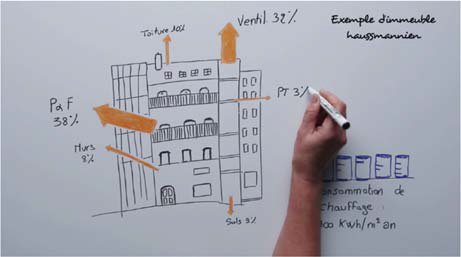 Exemple d'immeuble
haussmannien
Toiture 10%
Ventil. 32%
P&F
38%
PT 3%
Murs
8%
Sols 3%
onsommation de
chauffage :
00 KWh/m² an